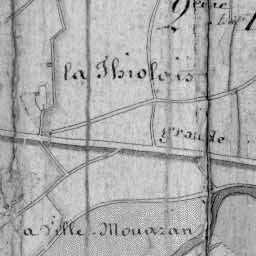 la Thiolais
grande
a Ville Mouazan